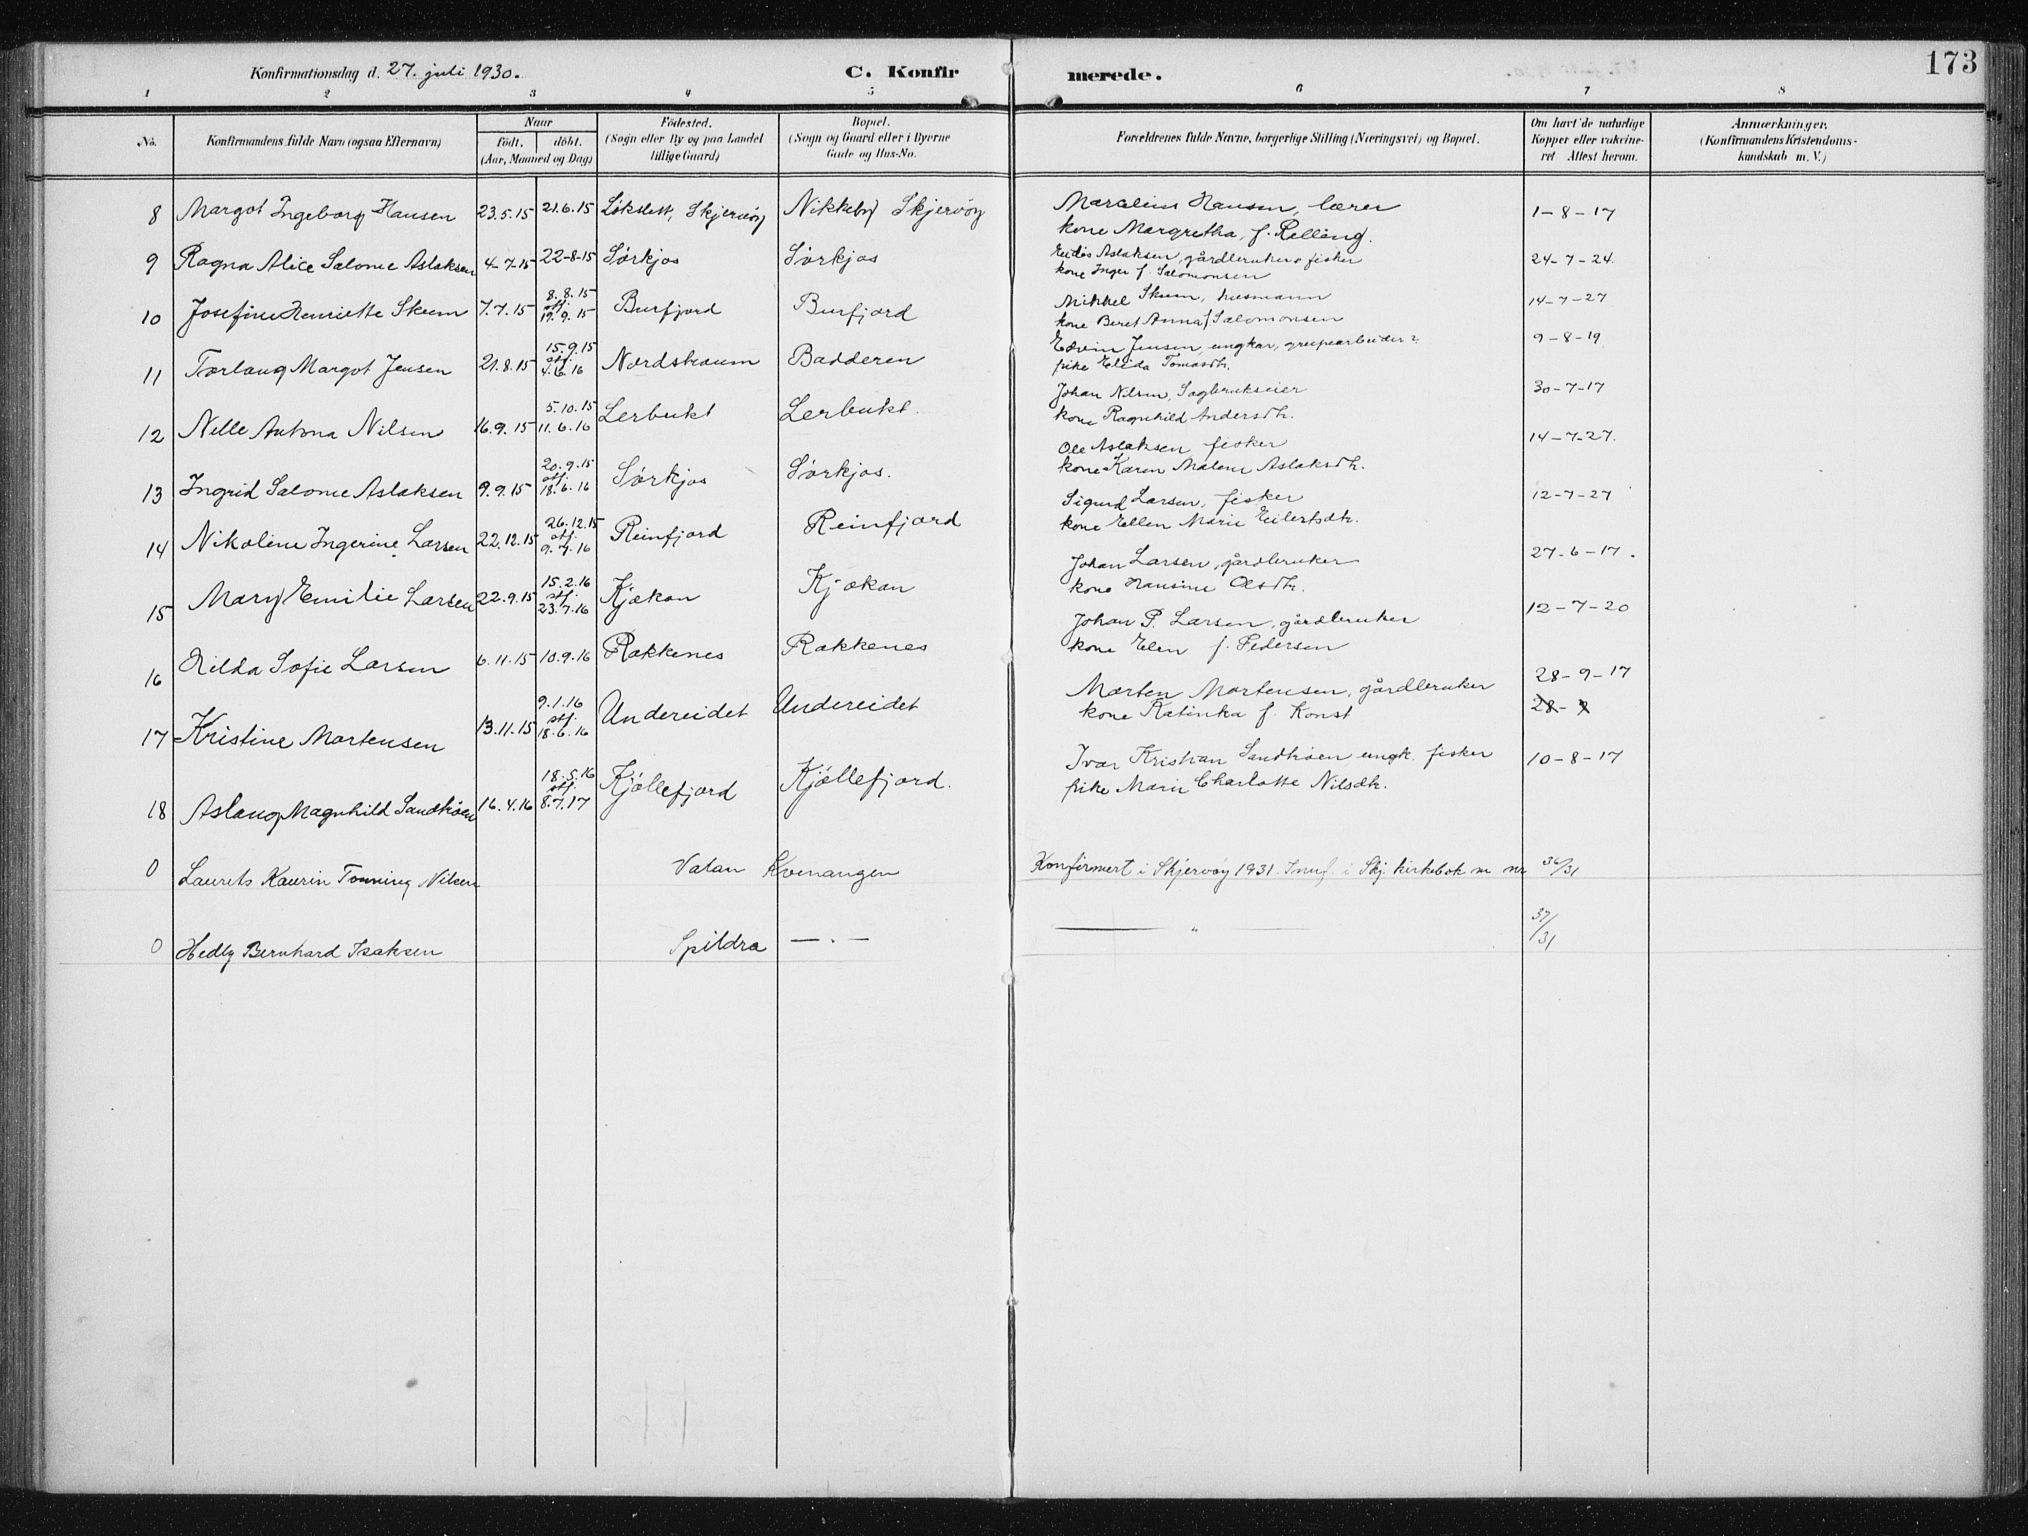 Konfirmationsdag d. 27. juli 1930. C. Konfirmerede. 173
1 2 3 4 5 6 7 8
No. Konfirmandens fulde Navn (ogsaa Efternavn) Naar født. døbt. (Aar, Maaned og Dag) Fødested. (Sogn eller By og paa Landet tillige Gaard) Bopæl. (Sogn og Gaard eller i Byerne Gade og Hus-No. Forældrenes fulde Navne, borgerlige Stilling (Næringsvei) og Bopæl. Om havt de naturlige Kopper eller vakcineret Attest herom. Anmærkninger, (Konfirmandens Kristendomskundskab m. V.)
8 Margot Ingeborg Hansen 23.5.15 21.6.15 Løkslett, Skjervøy Nikkeby Skjervøy Marelius Hansen, lærer 1-8-17
kone Margretha, f. Relling.
9 Ragna Alice Salome Aslaksen 4-7-15 22-8-15 Sørkjos Sørkjos Aslaksen, gårdbruker o fisker 24-7-24.
kone Inger f. Salomonsen
10 Josefine Henriette Skum 7.7.15 8.8.15 stf. 19.9.15 Burfjord Burfjord Mikkel Skum, husmann 14-7-27
kone Beret Anna f Salomonsen
11 Torlaug Margot Jensen 21.8.15 15.9.15 stf. 4.6.16 Nordstraum Badderen Edvin Jensen, ungkar, grupearbeider 9-8-19
pike Elida Tomasdtr.
12 Nelle Antona Nilsen 16.9.15 5.10.15 11.6.16 Lerbukt Lerbukt. Johan Nilsen, Sagbrukseier 30-7-17
kone Ragnhild Andersdtr.
13 Ingrid Salome Aslaksen 9.9.15 20.9.15 stf. 18.6.16 Sørkjos Sørkjos. Ole Aslaksen, fisker 14-7-27.
kone Karen Malene Aslaksdtr.
14 Nikoline Ingerine Larsen 22.12.15 26.12.15 stf. 9.7.16 Reinfjord Reinfjord Sigurd Larsen, fisker 12-7-27
kone Ellen Marie Eilertsdtr.
15 Mary Emilie Larsen 22.9.15 15.2.16 stf. 23.7.16 Kjækan Kjækan Johan Larsen, gårdbruker 27-6-17.
kone Hansine Olsdtr.
16 Hilda Sofie Larsen 6.11.15 10.9.16 Rakkenes Rakkenes Johan P. Larsen, gårdbruker 12-7-20
kone Elen f. Pedersen
17 Kristine Mortensen 13.11.15 9.1.16 stf. 18.6.16 Undereidet Undereidet Morten Mortensen, gårdbruker 28-9-17
kone Katinka f. Konst 28-9
18 Aslaug Magnhild Sandhøen 16.4.16 18.5.16 stf. 8.7.17 Kjøllefjord Kjøllefjord. Ivar Kristian Sandhøen ungk. fisker 10-8-17
pike Marie Charlotte Nilsdtr.
0 Laurets Kaurin Tonning Nilsen Valan Kvenangen Konfirmert i Skjervøy 1931. Innf. i Skj. kirkebok m nr 36/31
0 Hedly Bernhard Isaksen Spildra — . — — " — 37/31